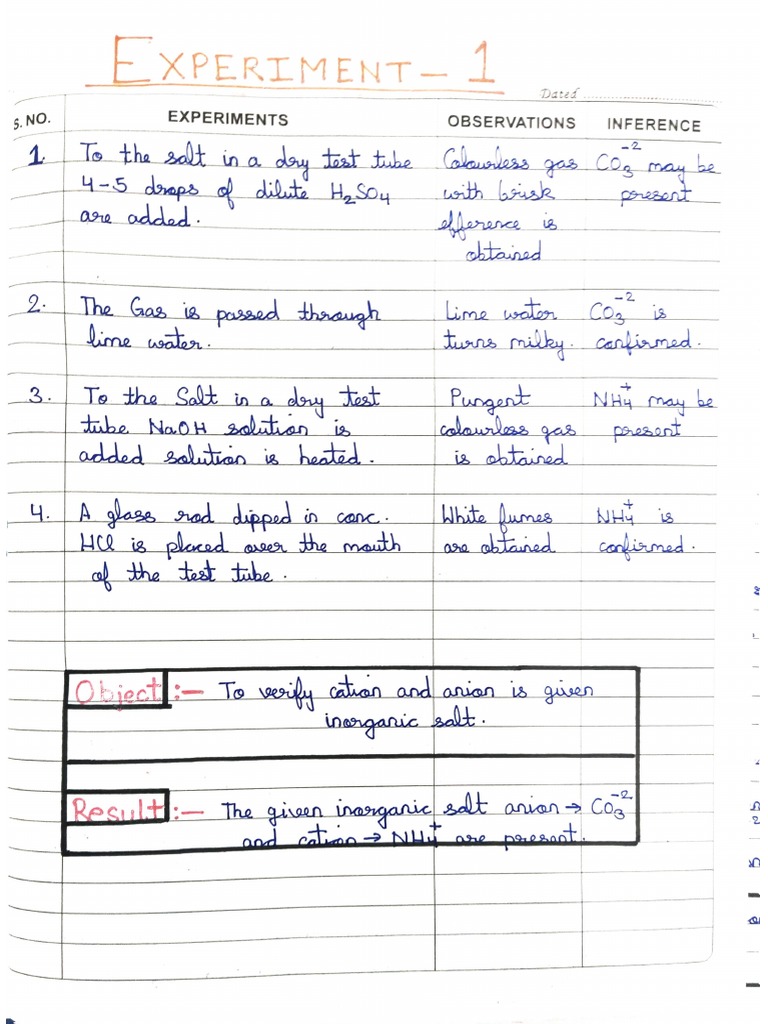 EXPERIMENT - 1
Dated ....................
S. NO. EXPERIMENTS OBSERVATIONS INFERENCE
1. To the salt in a dry test tube Colourless gas CO₃⁻² may be
4-5 drops of dilute H₂SO₄ with brisk present
are added. efference is
obtained
2. The Gas is passed through Lime water CO₃⁻² is
lime water. turns milky. confirmed.
3. To the Salt in a dry test Pungent NH₄⁺ may be
tube NaOH solution is colourless gas present
added solution is heated. is obtained
4. A glass rod dipped in conc. White fumes NH₄⁺ is
HCl is placed over the mouth are obtained confirmed.
of the test tube.
Object :- To verify cation and anion is given
inorganic salt.
Result :- The given inorganic salt anion → CO₃⁻²
and cation → NH₄⁺ are present.